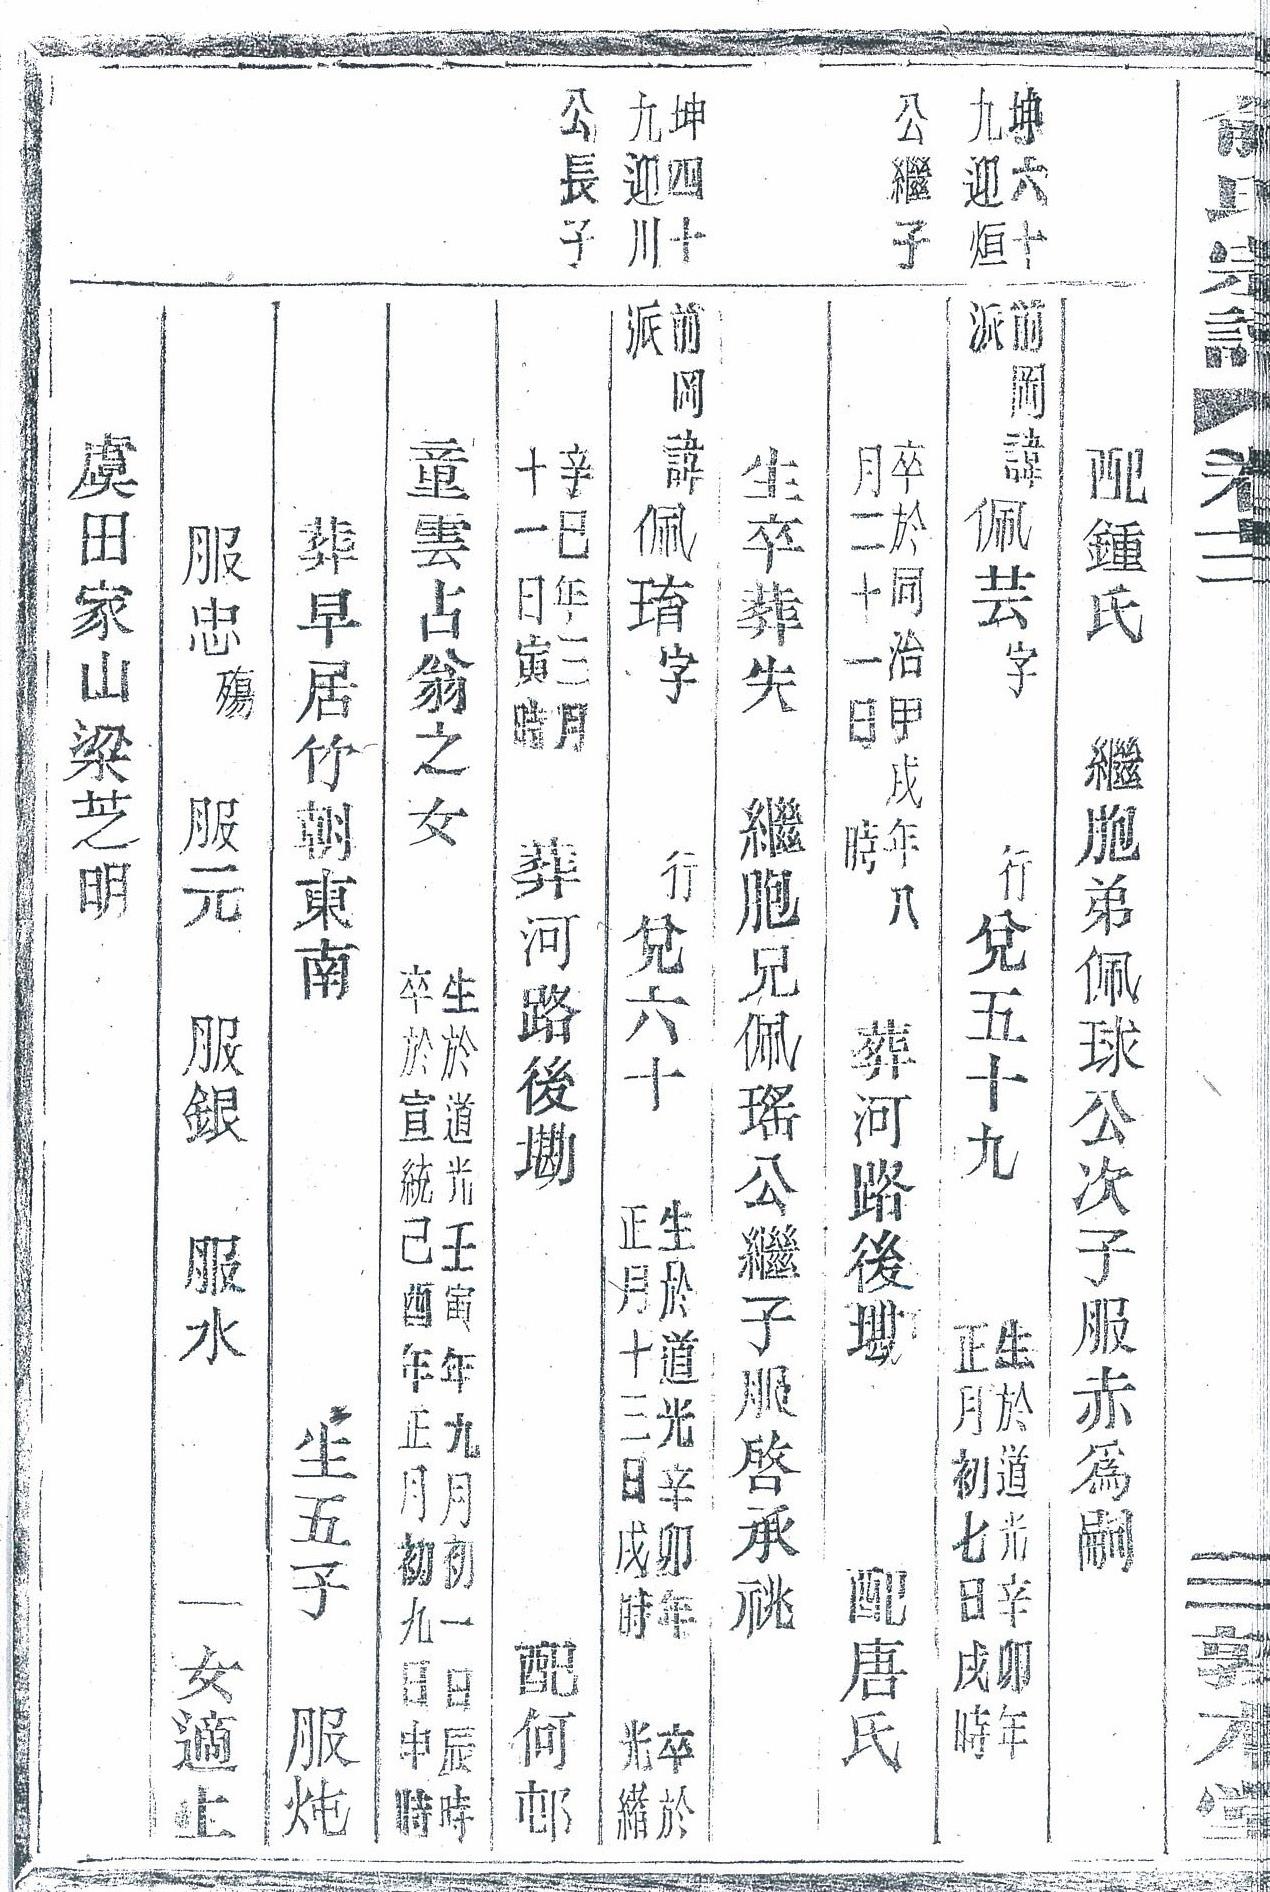 俞氏宗譜 卷十二 三 敦本堂
配鍾氏 繼胞弟佩球公次子服赤爲嗣
坤六十
九迎烜
前岡諱
派
佩芸字 行兌五十九 生於道光辛卯年
正月初七日戌時
公繼子
卒於同治甲戌年八
月二十一日 時
葬河路後墈 配唐氏
生卒葬失 繼胞兄佩瑤公繼子服啓承祧
坤四十
九迎川
前岡諱
派
佩琦字 行兌六十 生於道光辛卯年
正月十三日戌時
卒於
光緒
公長子
辛巳年三月
十一日寅時
葬河路後墈 配何邨
童雲占翁之女 生於道光壬寅年九月初一日辰時
卒於宣統己酉年正月初九日申時
葬早居竹朝東南 生五子 服炖
服忠殤 服元 服銀 服水 一女適上
虞田家山梁芝明